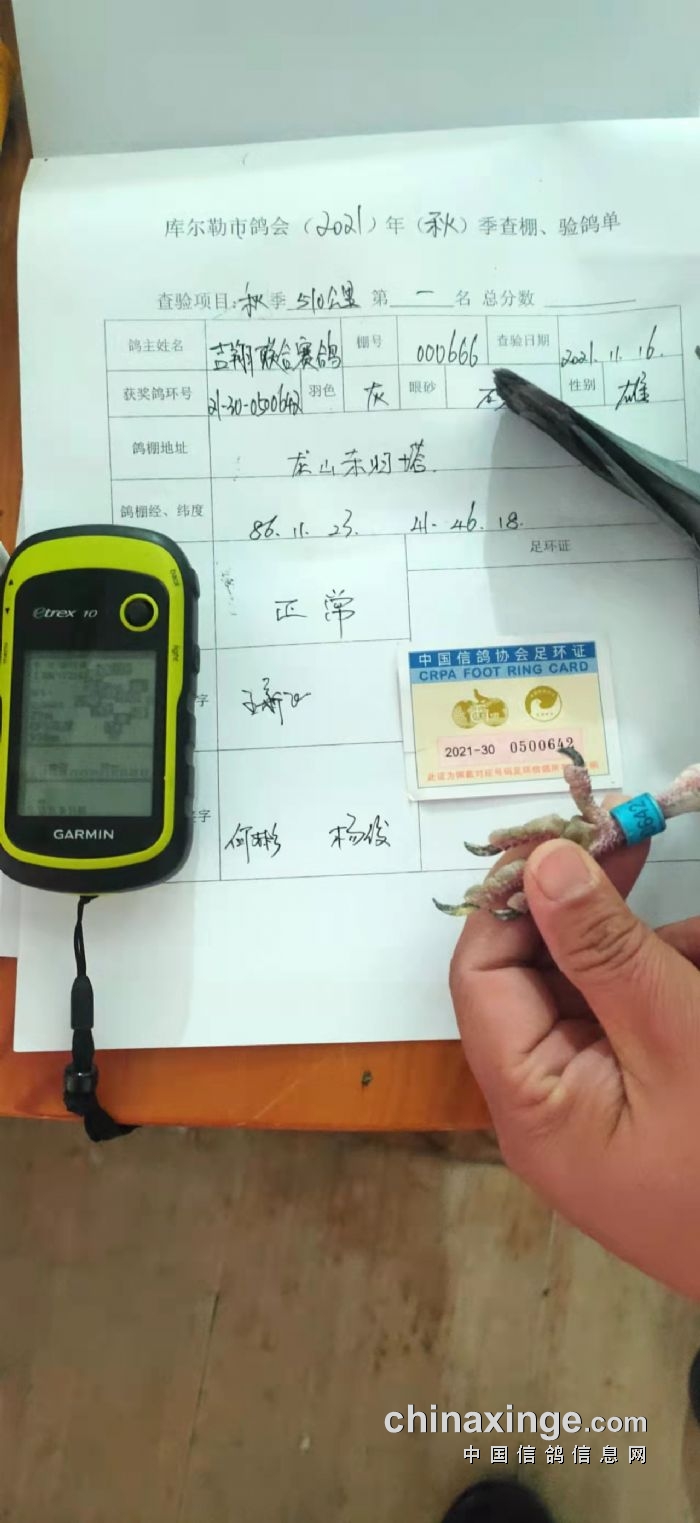 库尔勒市鸽会（2021）年（秋）季查棚、验鸽单
查验项目:秋季 510公里 第 一 名 总分数
鸽主姓名 吉翔联合赛鸽 棚号 000666 查验日期 2021.11.16.
获奖鸽环号 21-30-0500642 羽色 灰 眼砂 性别 雄
鸽棚地址 龙山
鸽棚经、纬度 86.11.23. 41-46.18.
足环证
正常
字
字 何彬 杨俊
中国信鸽协会足环证
CRPA FOOT RING CARD
2021-30 0500642
etrex 10
back
light
menu
GARMIN
0642
chinaxinge.com
中国信鸽信息网